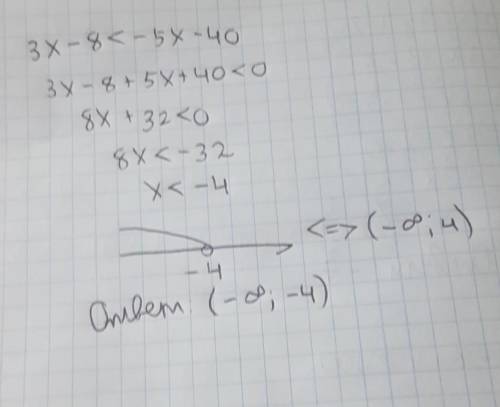 3x - 8 < - 5x - 40
3x - 8 + 5x + 40 < 0
8x + 32 < 0
8x < - 32
x < - 4
<=> (-∞; 4)
-4
Ответ (-∞; -4)